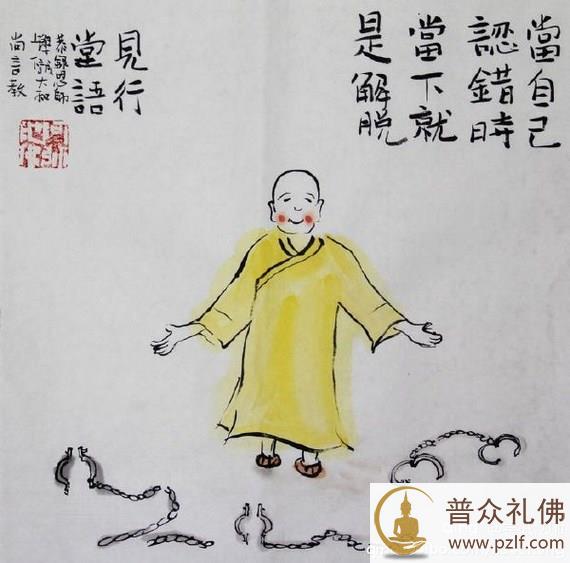 當自己
認錯時
當下就
是解脫
見行
堂語
恭錄恩師
大和
尚言教
普众礼佛
www.pzlf.com